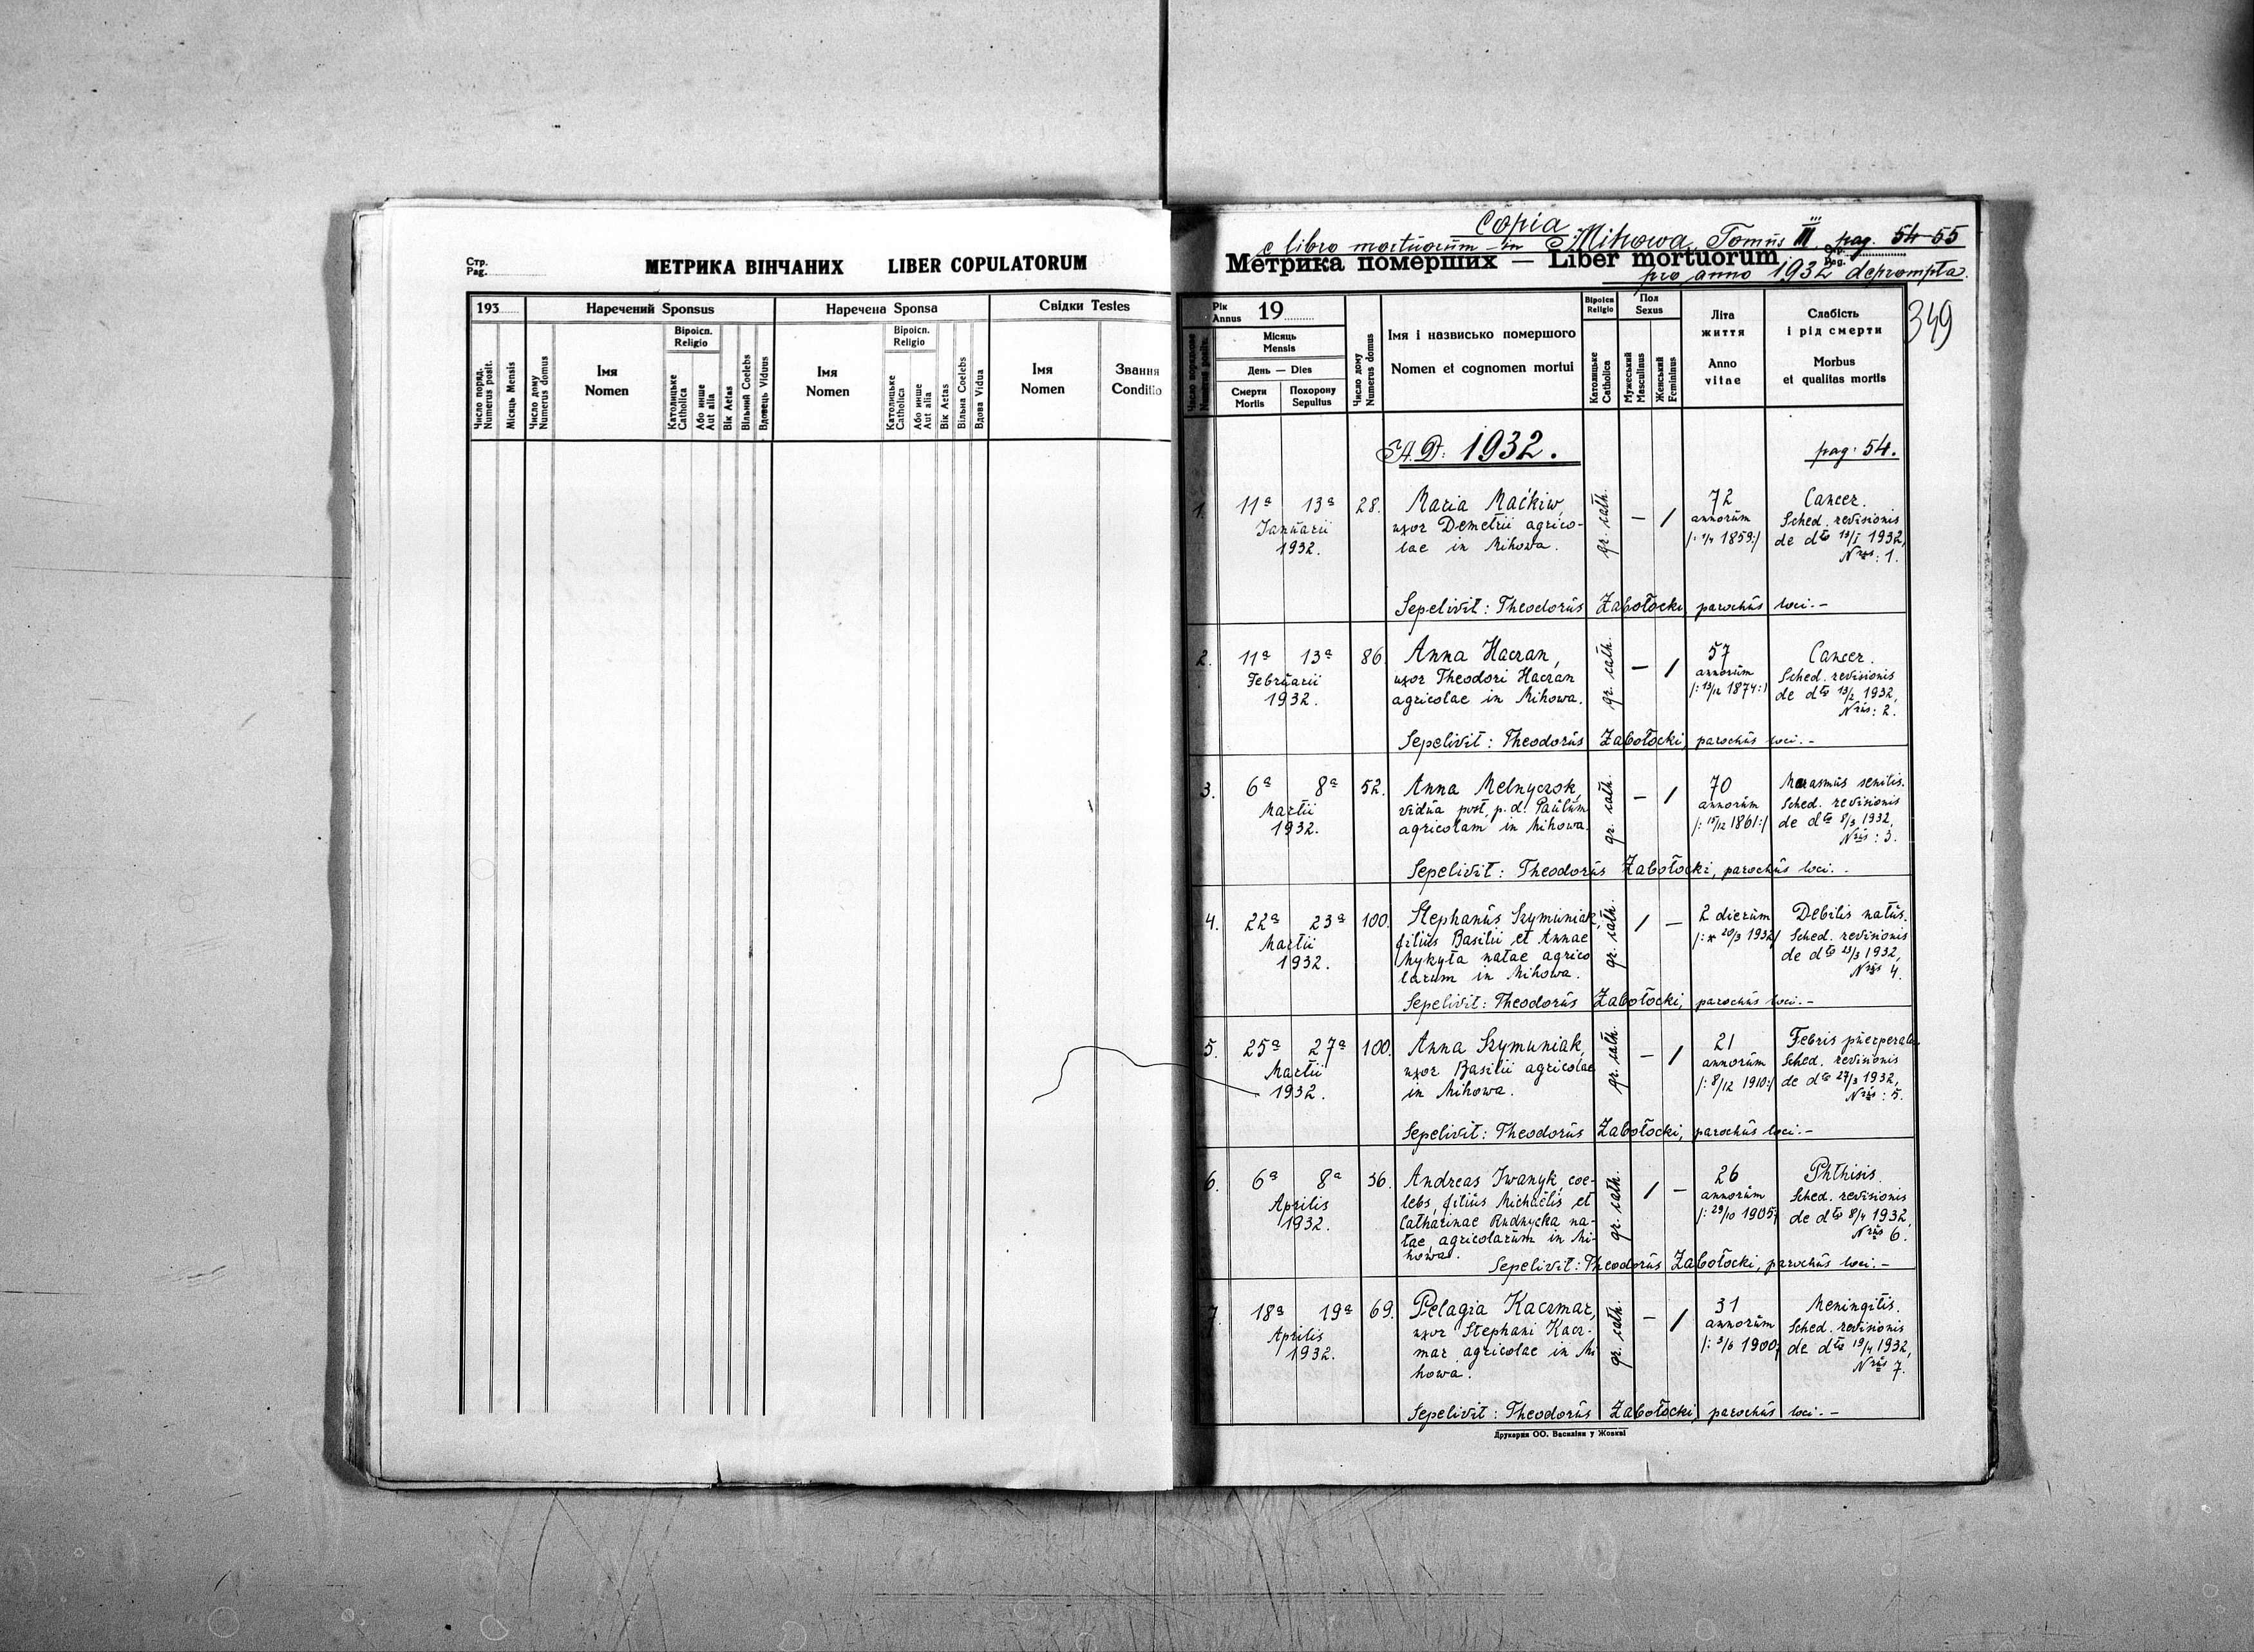 Стр.
Pag.
МЕТРИКА ВІНЧАНИХ LIBER COPULATORUM
193
Наречений Sponsus
Наречена Sponsa
Свідки Testes
Число поряд.
Numerus posit.
Місяць Mensis
Число дому
Numerus domus
Імя
Nomen
Віроісп.
Religio
Католицьке
Catholica
Або инше
Aut alia
Вік Aetas
Вільний Coelebs
Вдовець Viduus
Імя
Nomen
Віроісп.
Religio
Католицьке
Catholica
Або инше
Aut alia
Вік Aetas
Вільна Coelebs
Вдова Vidua
Імя
Nomen
Звання
Conditio
Copia
e libro mortuorum in Mihowa, Tomus III, pag. 54-55
Метрика померших — Liber mortuorum
Pag.
pro anno 1932 deprompta.
349
Рік
Annus 19
Місяць
Mensis
День — Dies
Смерти
Mortis
Похорону
Sepultus
Число дому
Numerus domus
Імя і назвисько помершого
Nomen et cognomen mortui
Віроісп
Religio
Католицьке
Catholica
Пол
Sexus
Мужеський
Masculinus
Женський
Femininus
Літа
життя
Anno
vitae
Слабість
і рід смерти
Morbus
et qualitas mortis
A.D: 1932. pag: 54.
1. 11ª 13ª 28. Maria Maćkiw, gr. cath. — / 72 Cancer.
Januarii uxor Demetrii agrico- annorum Sched. revisionis
1932. lae in Mihowa. 1859:/ de dto 13/I 1932,
Nrus: 1.
Sepelivit: Theodorus Zabołocki, parochus loci.-
2. 11ª 13ª 86 Anna Haczan, gr. cath. — / 57 Cancer.
Februarii uxor Theodori Haczan annorum Sched. revisionis
1932. agricolae in Mihowa. /:13/12 1874:/ de dto 13/2 1932,
Nrus: 2.
Sepelivit: Theodorus Zabołocki, parochus loci.-
3. 6ª 8ª 52. Anna Melnyczok, gr. cath. — / 70 Marasmus senilis.
Martii vidua post p.d. Paulum annorum Sched. revisionis
1932. agricolam in Mihowa. /:15/12 1861:/ de dto 8/3 1932,
Nrus: 3.
Sepelivit: Theodorus Zabołocki, parochus loci.
4. 22ª 23ª 100. Stephanus Szymuniak, gr. cath. / — 2 dierum Debilis natus.
Martii filius Basilii et Annae /:* 20/3 1932/ Sched. revisionis
1932. Mykyta natae agrico de dto 23/3 1932,
larum in Mihowa. Nrus 4.
Sepelivit: Theodorus Zabołocki, parochus loci.-
5. 25ª 27ª 100. Anna Szymuniak, gr. cath. — / 21 Febris puerperalis.
Martii uxor Basilii agricolae annorum Sched. revisionis
1932. in Mihowa. /:8/12 1910:/ de dto 27/3 1932,
Nrus: 5.
Sepelivit: Theodorus Zabołocki, parochus loci.-
6. 6ª 8ª 36. Andreas Iwanyk, coe- gr. cath. / — 26 Phthisis.
Aprilis lebs, filius Michaëlis et annorum Sched. revisionis
1932. Catharinae Rudnycka na- /:29/10 1905/ de dto 8/4 1932,
tae, agricolarum in Mi- Nrus 6.
howa.
Sepelivit: Theodorus Zabołocki, parochus loci.-
7. 18ª 19ª 69. Pelagia Kaczmar, gr. cath. — / 31 Meningitis.
Aprilis uxor Stephani Kacz- annorum Sched. revisionis
1932. mar agricolae in Mi /:3/6 1900/ de dto 19/4 1932,
howa. Nrus 7.
Sepelivit: Theodorus Zabołocki, parochus loci.-
Друкарня ОО. Василіян у Жовкві